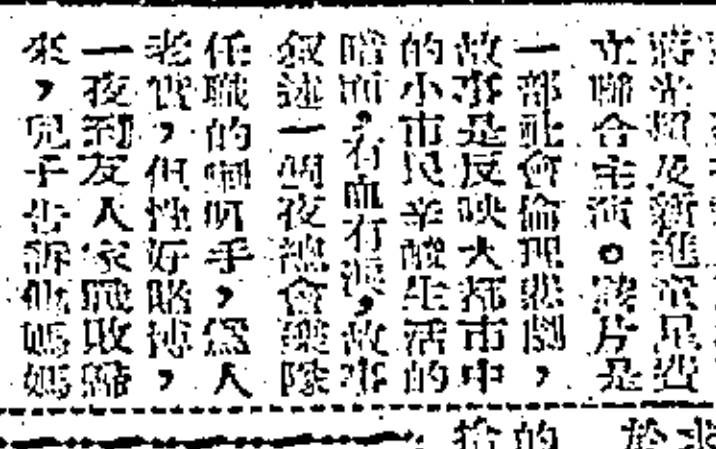 蔣光超及新進童星
立聯合主演。該片是
一部社會倫理悲劇，
故事是反映大都市中
的小市民辛酸生活的
暗面，有血有淚，故事
叙述一個夜總會樂隊
任職的喇叭手，爲人
老實，但性好賭博，
一夜到友人家戰敗歸
來，兒子告訴他媽媽